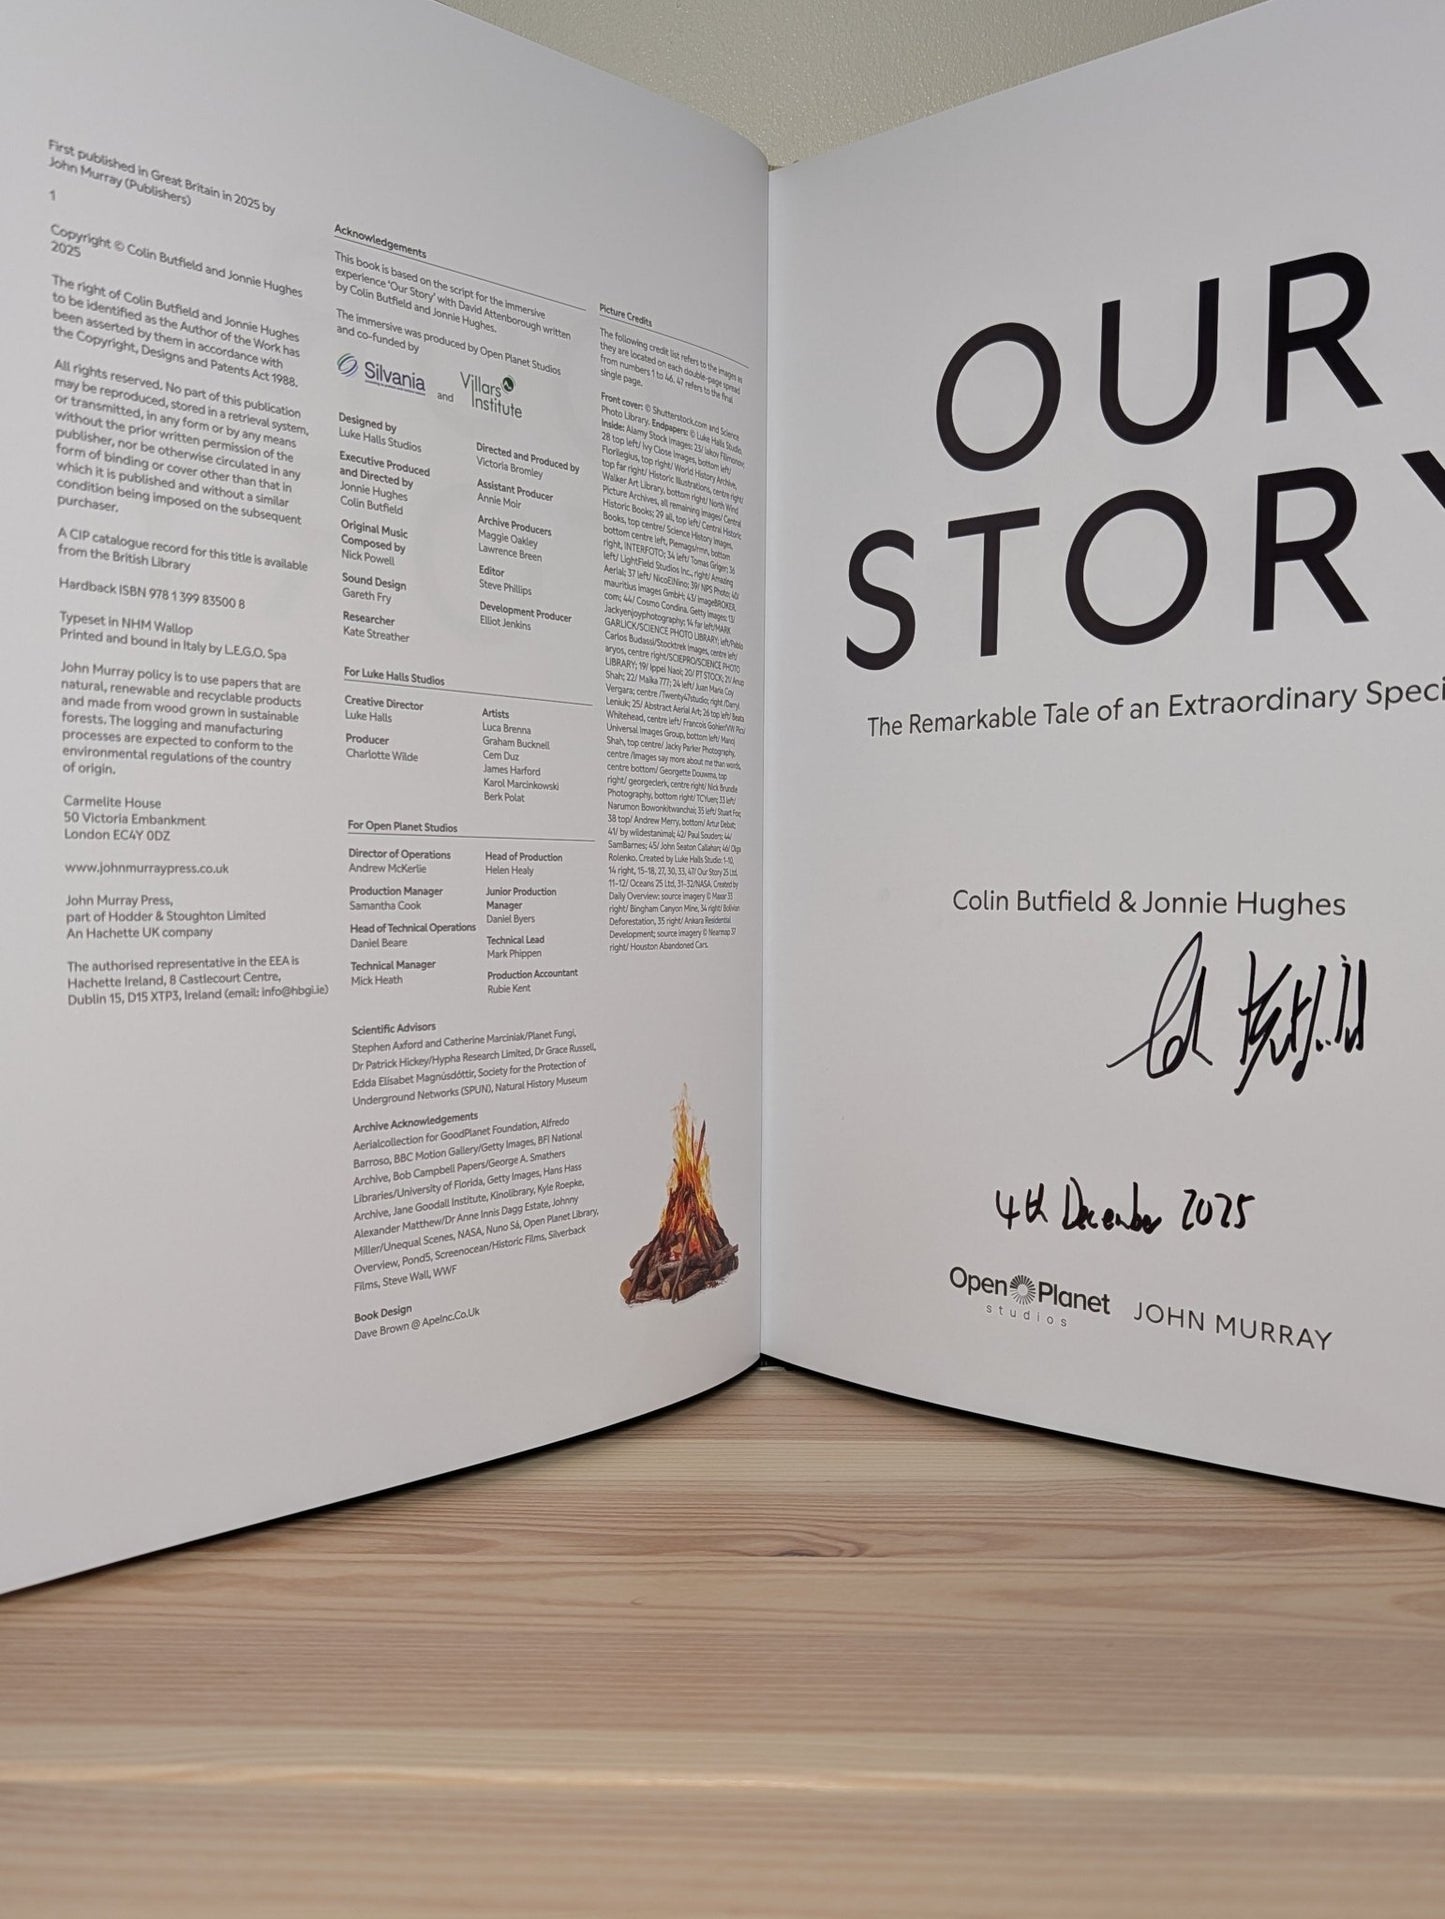 First published in Great Britain in 2025 by
John Murray (Publishers)
1
Copyright © Colin Butfield and Jonnie Hughes
2025
The right of Colin Butfield and Jonnie Hughes
to be identified as the Author of the Work has
been asserted by them in accordance with
the Copyright, Designs and Patents Act 1988.
All rights reserved. No part of this publication
may be reproduced, stored in a retrieval system,
or transmitted, in any form or by any means
without the prior written permission of the
publisher, nor be otherwise circulated in any
form of binding or cover other than that in
which it is published and without a similar
condition being imposed on the subsequent
purchaser.
A CIP catalogue record for this title is available
from the British Library
Hardback ISBN 978 1 399 83500 8
Typeset in NHM Wallop
Printed and bound in Italy by L.E.G.O. Spa
John Murray policy is to use papers that are
natural, renewable and recyclable products
and made from wood grown in sustainable
forests. The logging and manufacturing
processes are expected to conform to the
environmental regulations of the country
of origin.
Carmelite House
50 Victoria Embankment
London EC4Y 0DZ
www.johnmurraypress.co.uk
John Murray Press,
part of Hodder & Stoughton Limited
An Hachette UK company
The authorised representative in the EEA is
Hachette Ireland, 8 Castlecourt Centre,
Dublin 15, D15 XTP3, Ireland (email: info@hbgi.ie)
Acknowledgements
This book is based on the script for the immersive
experience 'Our Story' with David Attenborough written
by Colin Butfield and Jonnie Hughes.
The immersive was produced by Open Planet Studios
and co-funded by
Silvania and Villars Institute
Designed by
Luke Halls Studios
Executive Produced
and Directed by
Jonnie Hughes
Colin Butfield
Original Music
Composed by
Nick Powell
Sound Design
Gareth Fry
Researcher
Kate Streather
Directed and Produced by
Victoria Bromley
Assistant Producer
Annie Moir
Archive Producers
Maggie Oakley
Lawrence Breen
Editor
Steve Phillips
Development Producer
Elliot Jenkins
For Luke Halls Studios
Creative Director
Luke Halls
Producer
Charlotte Wilde
Artists
Luca Brenna
Graham Bucknell
Cem Duz
James Harford
Karol Marcinkowski
Berk Polat
For Open Planet Studios
Director of Operations
Andrew McKerlie
Production Manager
Samantha Cook
Head of Technical Operations
Daniel Beare
Technical Manager
Mick Heath
Head of Production
Helen Healy
Junior Production
Manager
Daniel Byers
Technical Lead
Mark Phippen
Production Accountant
Rubie Kent
Scientific Advisors
Stephen Axford and Catherine Marciniak/Planet Fungi,
Dr Patrick Hickey/Hypha Research Limited, Dr Grace Russell,
Edda Elísabet Magnúsdóttir, Society for the Protection of
Underground Networks (SPUN), Natural History Museum
Archive Acknowledgements
Aerialcollection for GoodPlanet Foundation, Alfredo
Barroso, BBC Motion Gallery/Getty Images, BFI National
Archive, Bob Campbell Papers/George A. Smathers
Libraries/University of Florida, Getty Images, Hans Hass
Archive, Jane Goodall Institute, Kinolibrary, Kyle Roepke,
Alexander Matthew/Dr Anne Innis Dagg Estate, Johnny
Miller/Unequal Scenes, NASA, Nuno Sá, Open Planet Library,
Overview, Pond5, Screenocean/Historic Films, Silverback
Films, Steve Wall, WWF
Book Design
Dave Brown @ ApeInc.Co.Uk
Picture Credits
The following credit list refers to the images as
they are located on each double-page spread
from numbers 1 to 46. 47 refers to the final
single page.
Front cover: © Shutterstock.com and Science
Photo Library. Endpapers: © Luke Halls Studio.
Inside: Alamy Stock Images: 23/ Iakov Filimonov;
28 top left/ Ivy Close Images, bottom left/
Florilegius, top right/ World History Archive,
top far right/ Historic Illustrations, centre right/
Walker Art Library, bottom right/ North Wind
Picture Archives, all remaining images/ Central
Historic Books; 29 all, top left/ Central Historic
Books, top centre/ Science History Images,
bottom centre left, Piemags/rmn, bottom
right, INTERFOTO; 34 left/ Tomas Griger; 36
left/ LightField Studios Inc., right/ Amazing
Aerial; 37 left/ NicoElNino; 39/ NPS Photo; 40/
mauritius images GmbH; 43/ imageBROKER.
com; 44/ Cosmo Condina. Getty Images: 13/
Jackyenjoyphotography; 14 far left/MARK
GARLICK/SCIENCE PHOTO LIBRARY; left/Pablo
Carlos Budassi/Stocktrek Images, centre left/
aryos, centre right/SCIEPRO/SCIENCE PHOTO
LIBRARY; 19/ Ippei Naoi; 20/ PT STOCK; 21/ Anup
Shah; 22/ Maika 777; 24 left/ Juan Maria Coy
Vergara; centre /Twenty47studio; right /Darryl
Leniuk; 25/ Abstract Aerial Art; 26 top left/ Beata
Whitehead, centre left/ Francois Gohier/VW Pics/
Universal Images Group, bottom left/ Manoj
Shah, top centre/ Jacky Parker Photography,
centre /Images say more about me than words,
centre bottom/ Georgette Douwma, top
right/ georgeclerk, centre right/ Nick Brundle
Photography, bottom right/ TCYuen; 33 left/
Narumon Bowonkitwanchai; 35 left/ Stuart Fox;
38 top/ Andrew Merry, bottom/ Artur Debat;
41/ by wildestanimal; 42/ Paul Souders; 44/
SamBarnes; 45/ John Seaton Callahan; 46/ Olga
Rolenko. Created by Luke Halls Studio: 1-10,
14 right, 15-18, 27, 30, 33, 47/ Our Story 25 Ltd,
11-12/ Oceans 25 Ltd, 31-32/NASA. Created by
Daily Overview; source imagery © Maxar 33
right/ Bingham Canyon Mine, 34 right/ Bolivian
Deforestation, 35 right/ Ankara Residential
Development; source imagery © Nearmap 37
right/ Houston Abandoned Cars.
OUR
STORY
The Remarkable Tale of an Extraordinary Speci
Colin Butfield & Jonnie Hughes
4th December 2025
Open Planet
studios
JOHN MURRAY